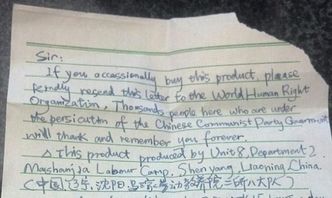 Sir:
If you accassionally buy this product, please
kindly resend this letter to the World Human Right
Organization. Thousands people here who are under
the persicution of the Chinese Communist Party Government
will thank and remember you forever.
This product produced by Unit 8, Department 2,
Mashanjia Labour Camp, Shen yang, Liaoning, China.
(中国,辽宁,沈阳,马三家劳动教养院二所八大队)